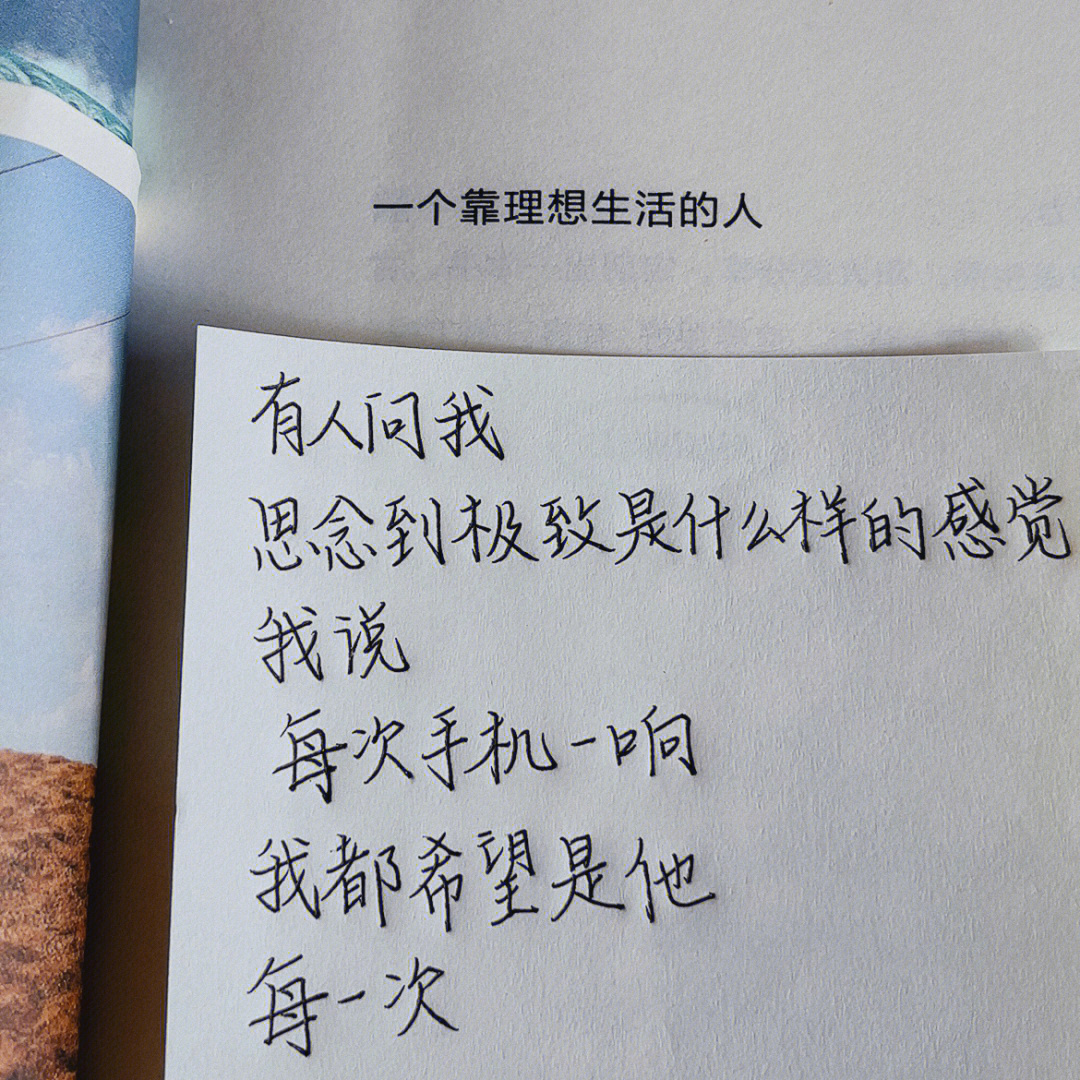 一个靠理想生活的人
有人问我
思念到极致是什么样的感觉
我说
每次手机一响
我都希望是他
每一次